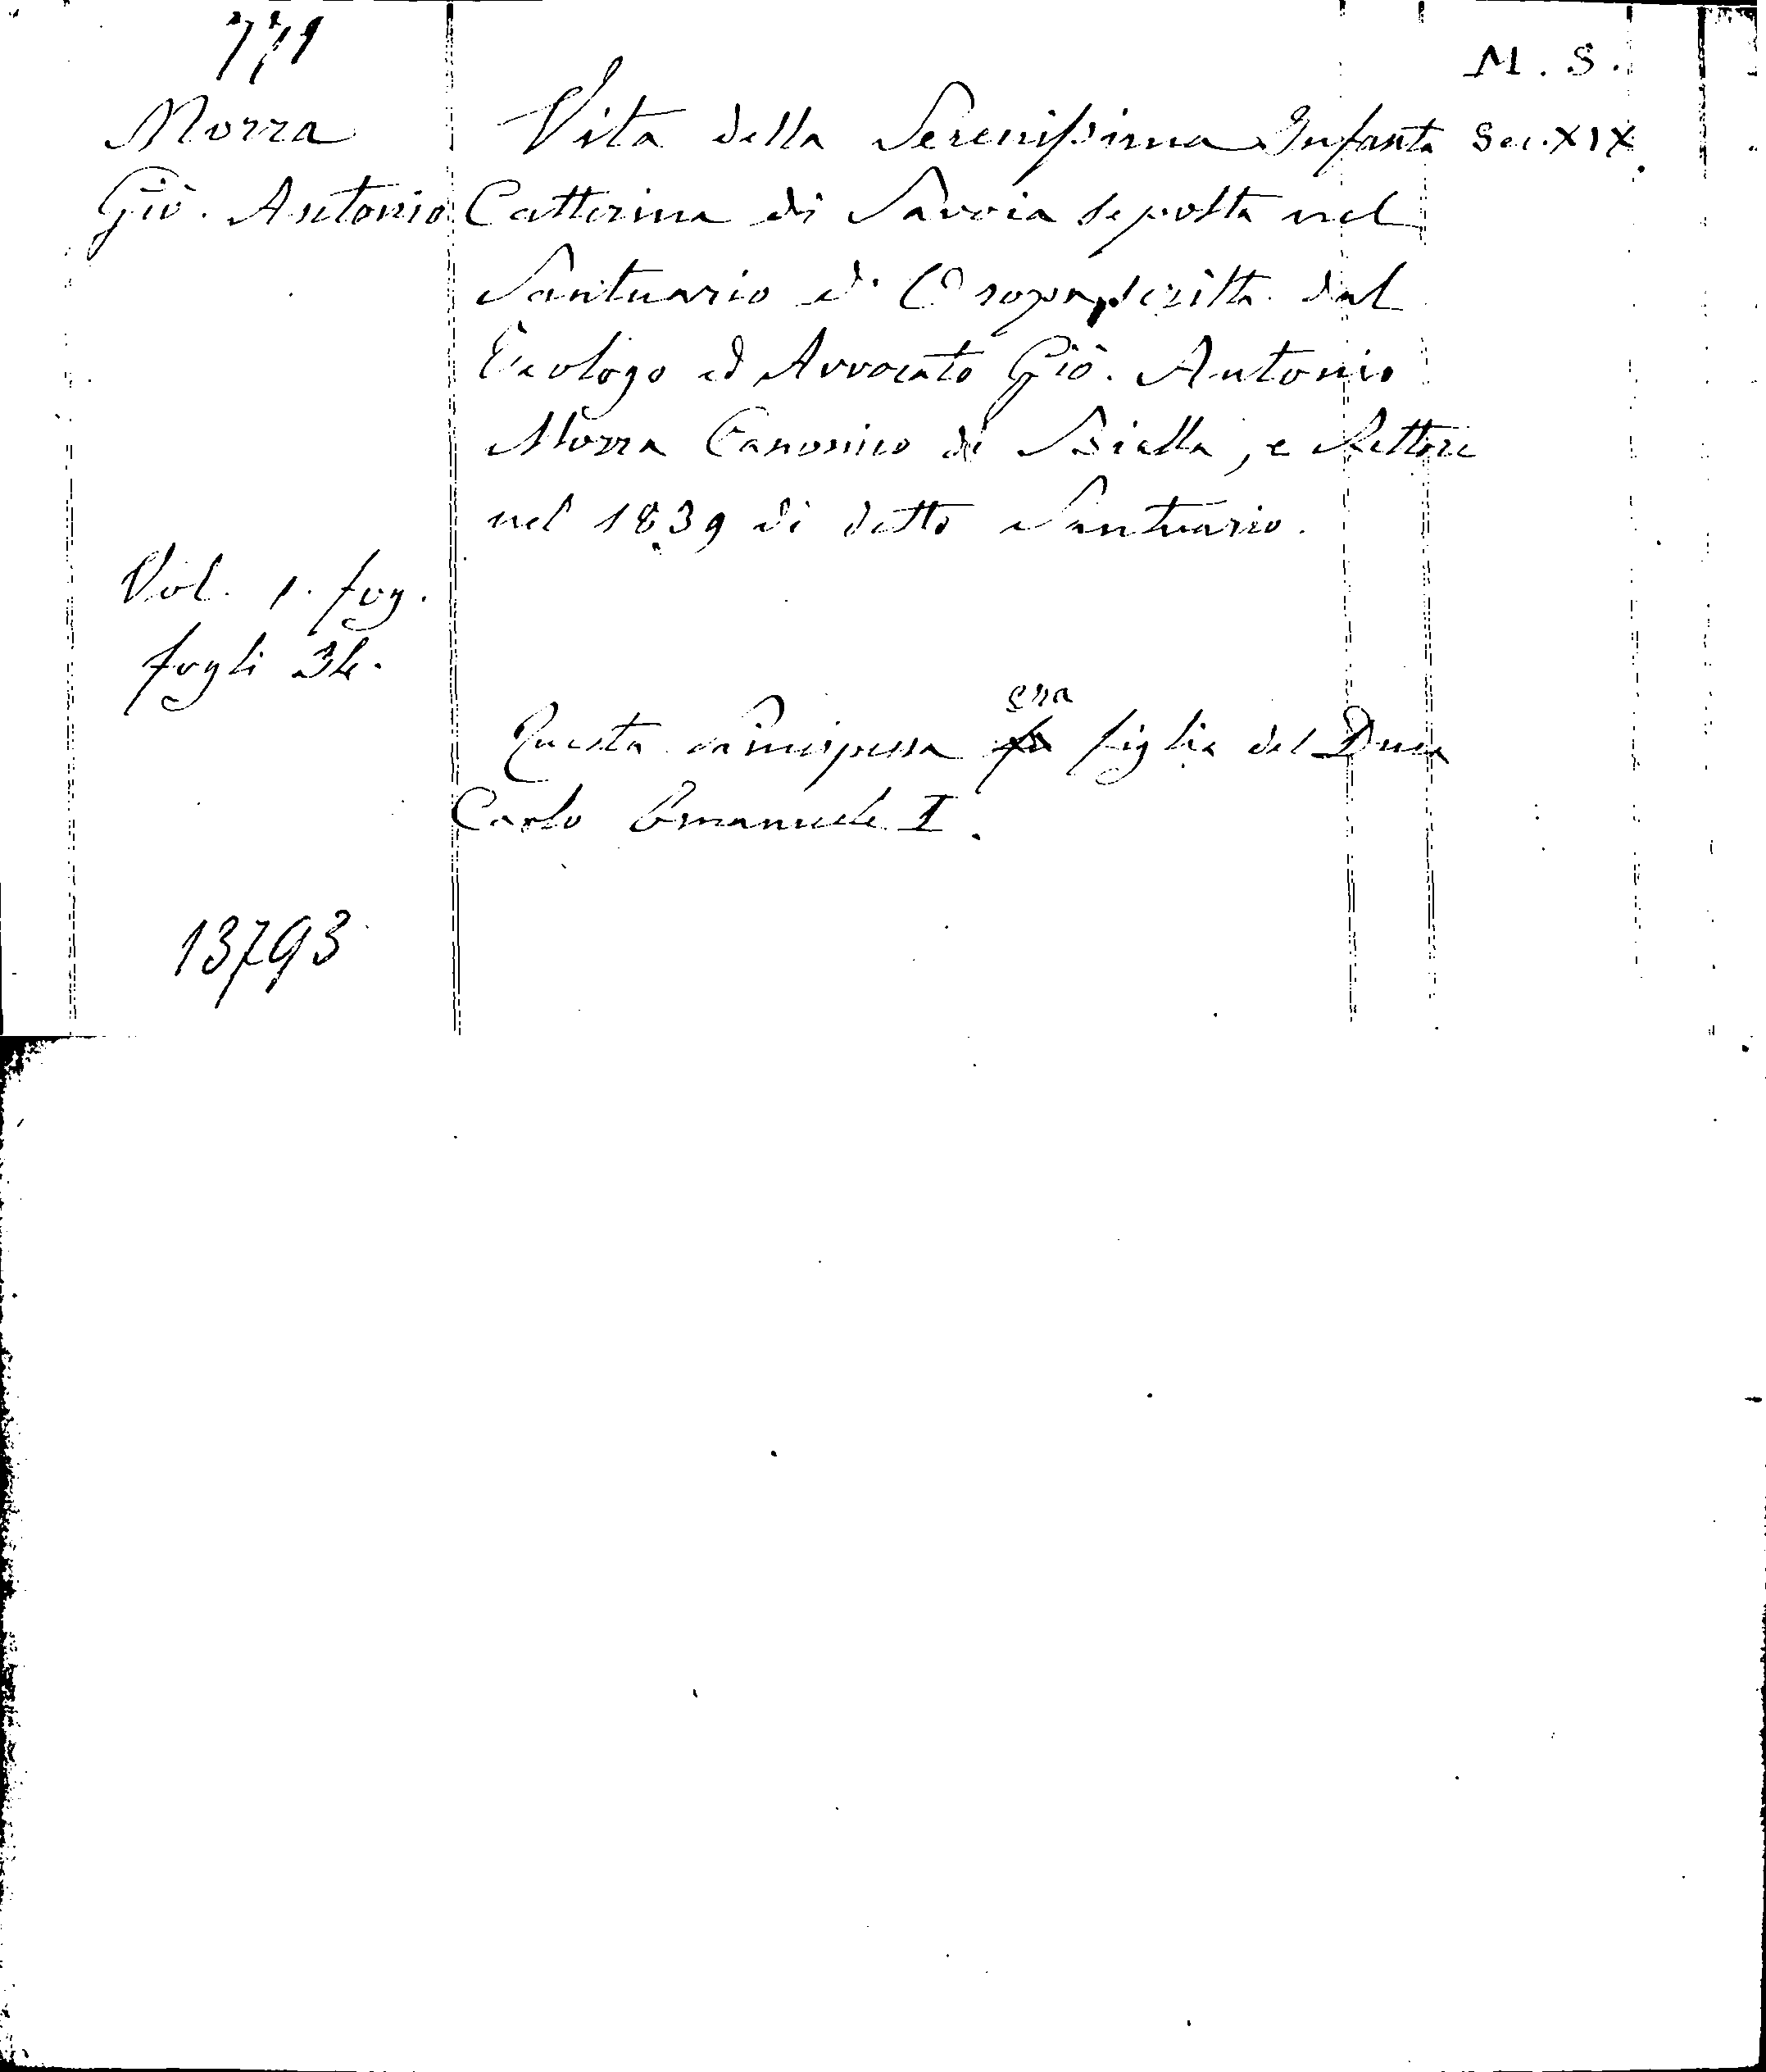 771
M. S.
Morra
Giò. Antonio
Vita della Serenissima Infanta
Sec. XIX.
Catterina di Savoia sepolta nel
Santuario d' Oropa, scritta dal
Teologo ed Avvocato Giò. Antonio
Morra Canonico di Biella, e Rettore
nel 1839 di detto Santuario.
Vol. 1. fog.
fogli 34.
Questa Principessa era figlia del Duca
Carlo Emanuele I.
13793